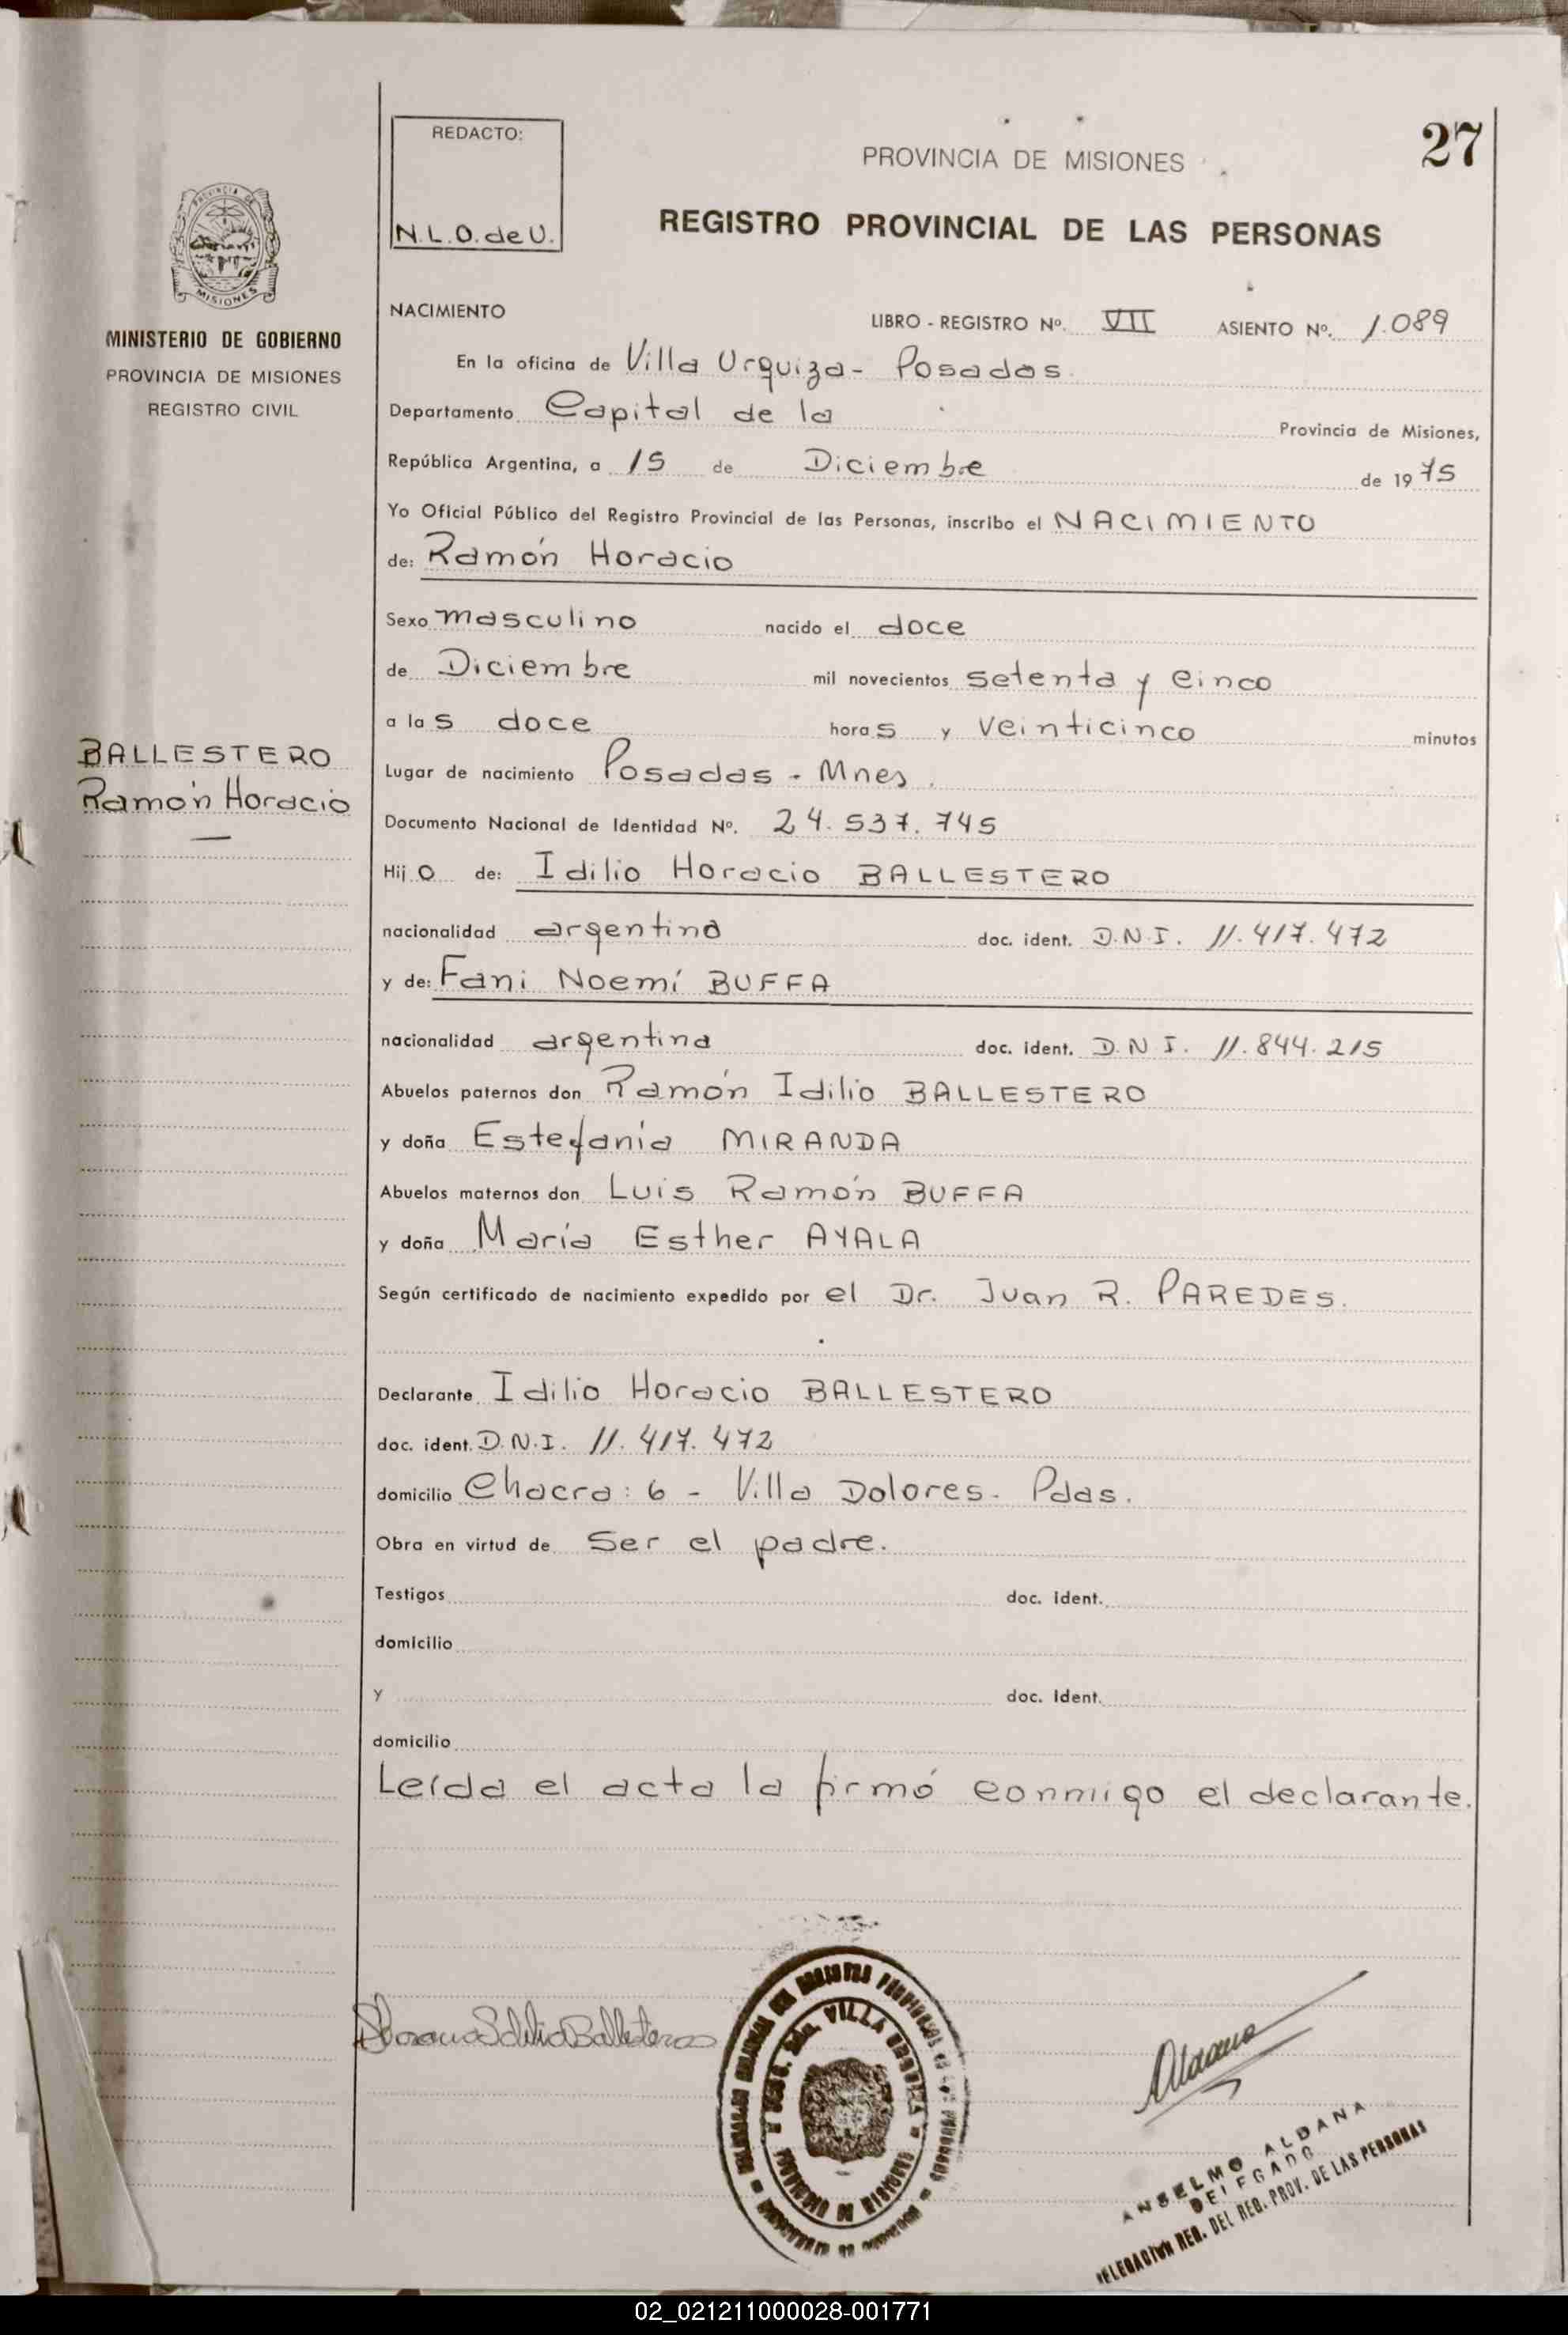 REDACTO:
N.L.O. de U.
PROVINCIA DE MISIONES
27
REGISTRO PROVINCIAL DE LAS PERSONAS
PROVINCIA DE
MISIONES
MINISTERIO DE GOBIERNO
PROVINCIA DE MISIONES
REGISTRO CIVIL
BALLESTERO
Ramón Horacio
NACIMIENTO
LIBRO - REGISTRO Nº. VII ASIENTO Nº. 1.089
En la oficina de Villa Urquiza - Posadas
Departamento Capital de la Provincia de Misiones,
República Argentina, a 15 de Diciembre de 1975
Yo Oficial Público del Registro Provincial de las Personas, inscribo el NACIMIENTO
de: Ramón Horacio
Sexo masculino nacido el doce
de Diciembre mil novecientos setenta y cinco
a las doce horas y veinticinco minutos
Lugar de nacimiento Posadas - Mnes.
Documento Nacional de Identidad Nº. 24.537.745
Hijo de: Idilio Horacio BALLESTERO
nacionalidad argentina doc. ident. D.N.I. 11.417.472
y de: Fani Noemí BUFFA
nacionalidad argentina doc. ident. D.N.I. 11.844.215
Abuelos paternos don Ramón Idilio BALLESTERO
y doña Estefania MIRANDA
Abuelos maternos don Luis Ramón BUFFA
y doña María Esther AYALA
Según certificado de nacimiento expedido por el Dr. Juan R. PAREDES.
Declarante Idilio Horacio BALLESTERO
doc. ident. D.N.I. 11.417.472
domicilio Chacra: 6 - Villa Dolores - Pdas.
Obra en virtud de ser el padre.
Testigos doc. Ident.
domicilio
y doc. Ident.
domicilio
Leída el acta la firmó conmigo el declarante.
VILLA URQUIZA
PROVINCIA DE MISIONES
Aldana
ANSELMO ALDANA
DELEGADO
DELEGACION REG. DEL REG. PROV. DE LAS PERSONAS
02_021211000028-001771